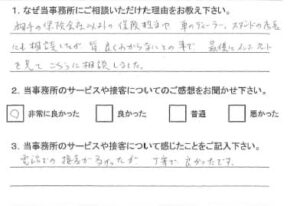 1. なぜ当事務所にご相談いただけた理由をお教え下さい。
相手の保険会社以外の保険担当や 車のディーラー、スタンドの店長
にも相談したが 皆 良くわからないとの事で 最後にインターネット
を見て こちらに相談しました。
2. 当事務所のサービスや接客についてのご感想をお聞かせ下さい。
○ 非常に良かった 良かった 普通 悪かった
3. 当事務所のサービスや接客について感じたことをご記入下さい。
電話での接客が 丁寧で 良かったです。